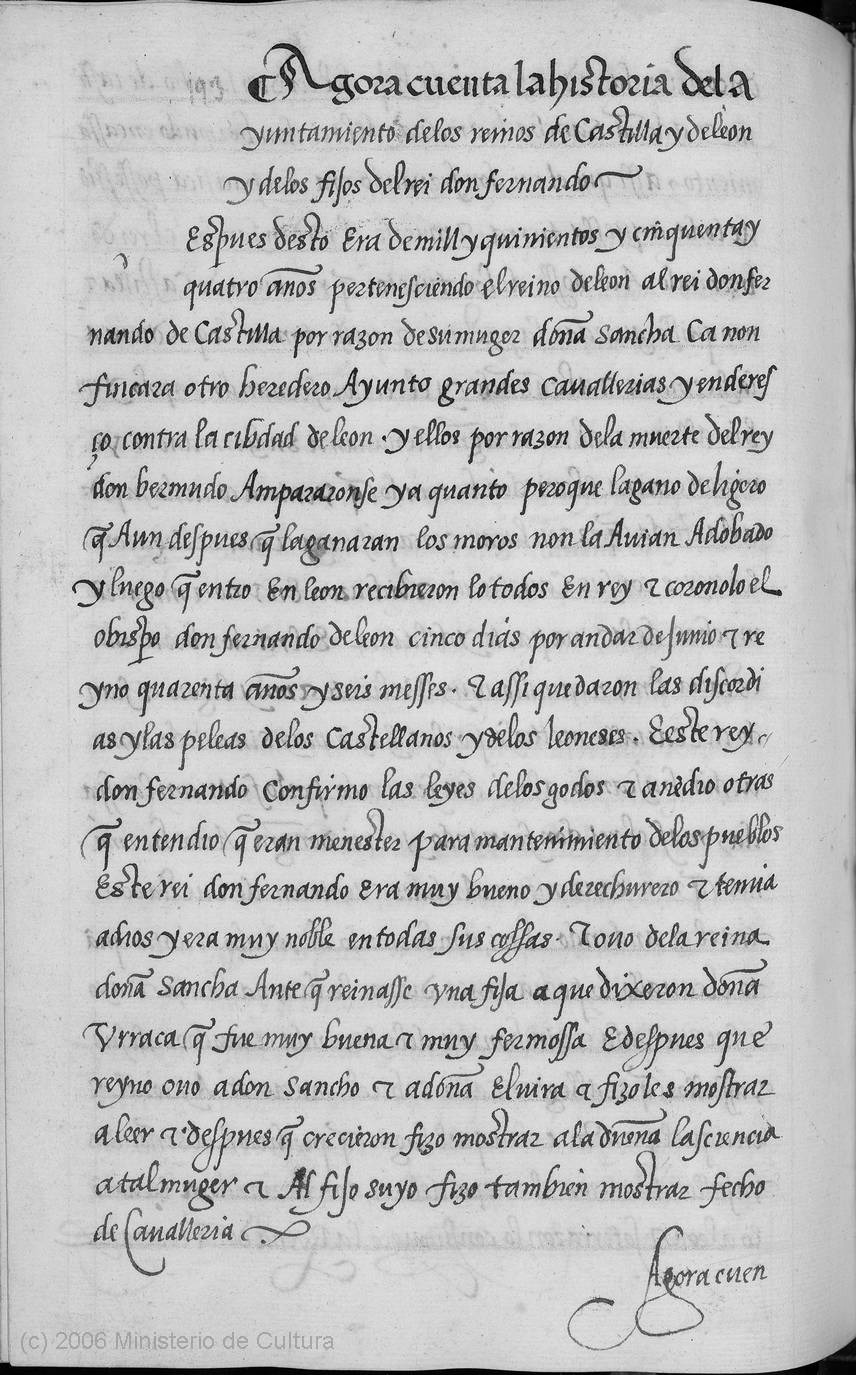 193
Agora cuenta la historia del A
yuntamiento delos reinos de Castilla y de leon
y delos fijos del rei don fernando
Espues desto Era de mill y quinientos y cinquenta y
quatro años pertenesciendo el reino de leon al rei don fer
nando de Castilla por razon de su muger doña Sancha Ca non
fincara otro heredero Ayunto grandes cavallerias y enderes
ço contra la cibdad de leon . y ellos por razon dela muerte del rey
don bermudo Ampararonse ya quanto pero que la gano de ligero
q̃ Aun despues q̃ la ganaran los moros non la Avian Adobado
y luego q̃ entro En leon recibieron lo todos En rey τ coronolo el
obispo don fernando de leon cinco dias por andar de Junio τ re
yno quarenta años y seis messes . τ assi quedaron las discordi
as y las peleas delos Castellanos y delos leoneses . E este rey
don fernando Confirmo las leyes delos godos τ anedio otras
q̃ entendio q̃ eran menester para mantenimiento delos pueblos
Este rei don fernando Era muy bueno y derechurero τ temia
a dios y era muy noble en todas sus cossas . τ ovo dela reina
doña Sancha Ante q̃ reinasse vna fija a que dixeron doña
Vrraca q̃ fue muy buena τ muy fermossa E despues que
reyno ovo a don Sancho τ a doña Elvira τ fizo les mostrar
a leer τ despues q̃ crecieron fizo mostrar a la dueña la sciencia
a tal muger τ Al fijo suyo fizo tambien mostrar fecho
de Cavalleria
Agora cuen
(c) 2006 Ministerio de Cultura